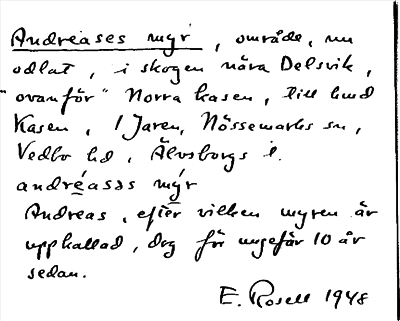 Andréases myr, område, nu
odlat, i skogen nära Delsvik,
"ovanför" Norra Kasen, till hmd
Kasen, 1 Jaren, Nössemarks sn,
Vedbo hd, Älvsborgs l.
andréasäs mýr
Andreas, efter vilken myren är
uppkallad, dog för ungefär 10 år
sedan.
E. Rosell 1948